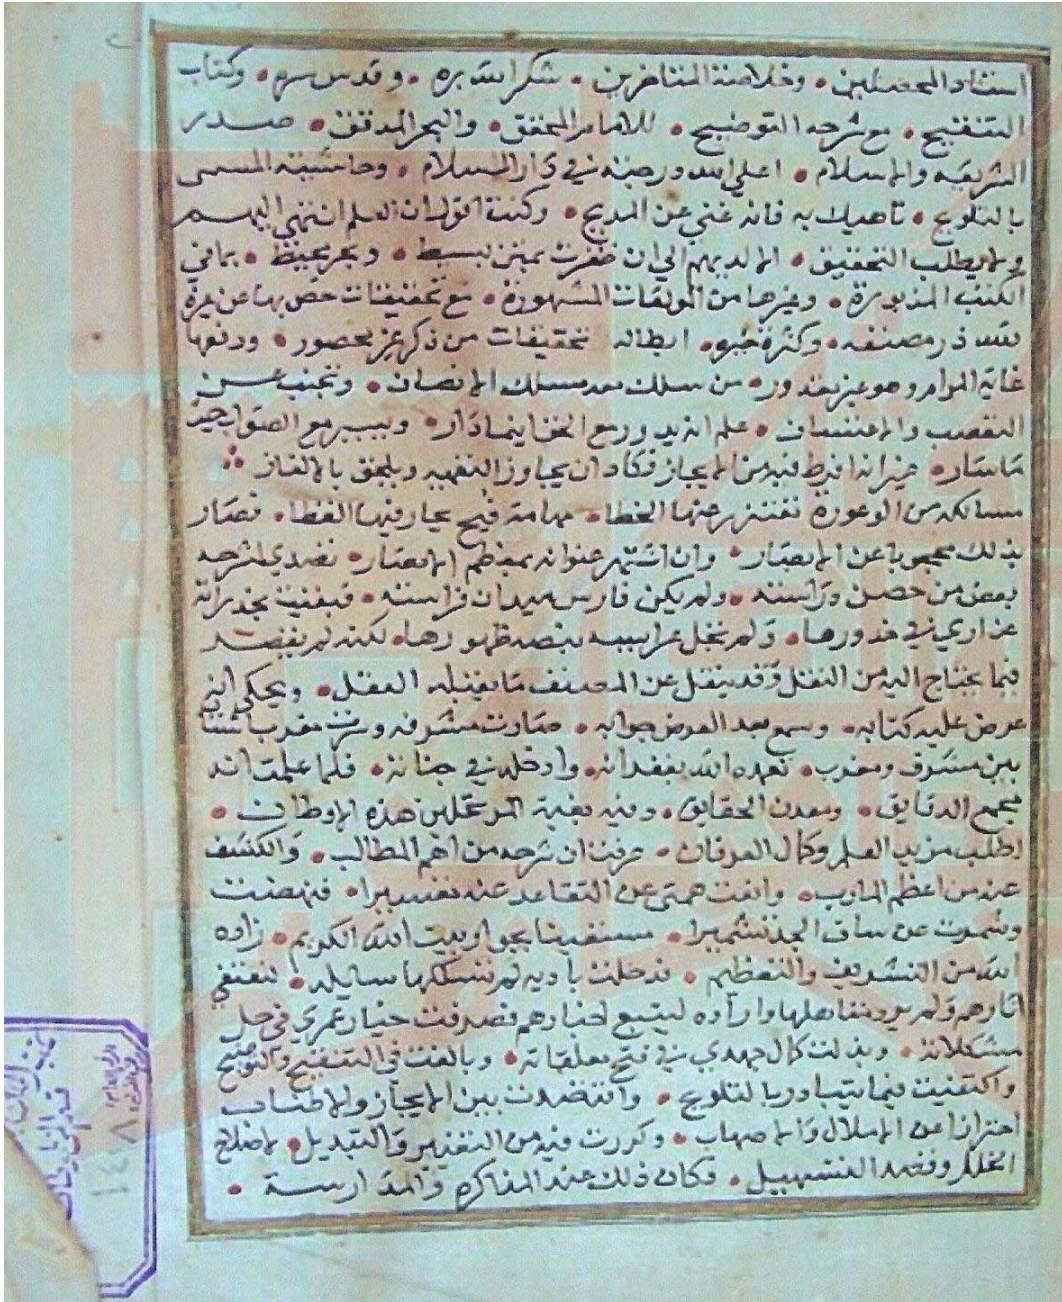 استاد المحصلين • وخلاصة المتاخرين • شكر الله بره • وقدس سره • وكتاب
التنقيح • مع شرحه التوضيح • للامام المحقق • والبحر المدقق • صدر
الشريعه والاسلام • اعلى الله درجته في دار السلام • وحاشيته المسمى
بالتلويح • ناهيك به فانه غني عن المديح • وكنت اقول ان العلم انتهى اليهم
ولا يطلب التحقيق • الا لديهم الى ان ظفرت بمتن بسيط • وبحر محيط • بما في
الكتب المذبورة • وغيرها من المولفات المشهورة • مع تحقيقات خص بها عن غيره
مصنفه • وكثرة خبره • ابطاله تحقيقات من ذكر غير محصور • ودفعها
غاية المرام وهو غير مقدور • من سلك بعد مسلك الانصاف • وتجنب عن
التعصب والاعتساف • علم انه يدور مع الحق اينما دار • ويسير مع الصواب حيث
ما سار • غير انه افرط فيه من الايجاز فكاد ان يجاوز التفهيم ويلحق بالالغاز
مسالكه من الوعورة تقشعر عنها الخطا • مهامه فيح يحار فيها القطا • فصار
بذلك محجوبا عن الابصار • وان اشتهر عنوانه بمعظم الامصار • تصدى لشرحه
بعض من حضر دراسته • ولم يكن فارس ميدان فراسته • فبقيت مخدراته
عذارى في خدورها • ولم تجل عرايسه بمنصة ظهورها • لكنه لم يقصر
فيما يحتاج اليه من النقل وقد ينقل عن المصنف ما يقبله العقل • ويحكى انى
عرض عليه كتابه • وسمع بعد العرض جوابه • سارت مشرقه وسرت مغربا شتان
بين مشرق ومغرب • تغمده الله بغفرانه • وادخله في جنانه • فلما علمت انه
مجمع الدقايق • ومعدن الحقايق • وفيه بغية المرتحلين هذه الاوطان •
لطلب مزيد العلم وكمال العرفان • عرفت ان شرحه من اهم المطالب • والكشف
عنه من اعظم المارب • وانفت همتي عن التقاعد عنه تفسيرا • فنهضت
وشمرت عن ساق الجد تشميرا • مستفيدا بجوار بيت الله الكريم • زاده
الله من التشريف والتعظيم • فدخلت باديه لم تسلكها سابله • لتقتفي
اثارهم ولم يرد اهلها وارده ليتبع اخبارهم فصرفت خيار عمري في حل
مشكلاته • وبذلت كمال جهدي في فتح مغلقاته • وبالغت في التنقيح والتوضيح
واكتفيت فيما يتبادر بالتلويح • واقتصدت بين الايجاز والاطناب
احترازا عن الاملال والاسهاب • وكررت فيه من التغيير والتبديل • لاصلاح
الخلل وقصد التسهيل • فكان ذلك عند المذاكره والمدارسة •